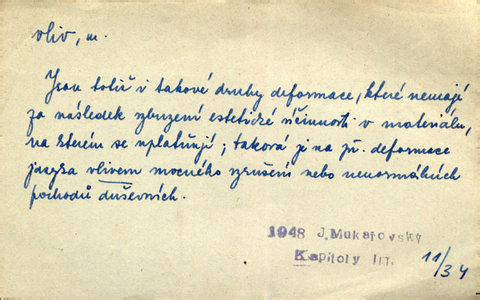 vliv, m.
Jsou totiž i takové druhy deformace, které nemají
za následek vzbuzení estetické účinnosti v materiálu,
na kterém se uplatňují; taková je na př. deformace
jazyka vlivem mocného vzrušení nebo nenormálních
pochodů duševních.
1948 J. Mukařovský
Kapitoly III.
11/34